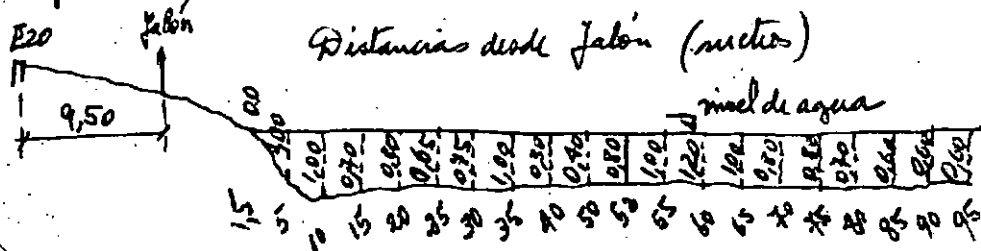 E20
Jalón
Distancias desde Jalón (metros)
9,50
nivel de agua
0,0 1,00 1,00 0,70 0,80 0,65 0,75 1,00 0,30 0,40 0,80 1,00 1,20 1,00 0,80 0,80 0,70 0,60 0,60 0,60
1,5 5 10 15 20 25 30 35 40 50 50 55 60 65 70 75 80 85 90 95